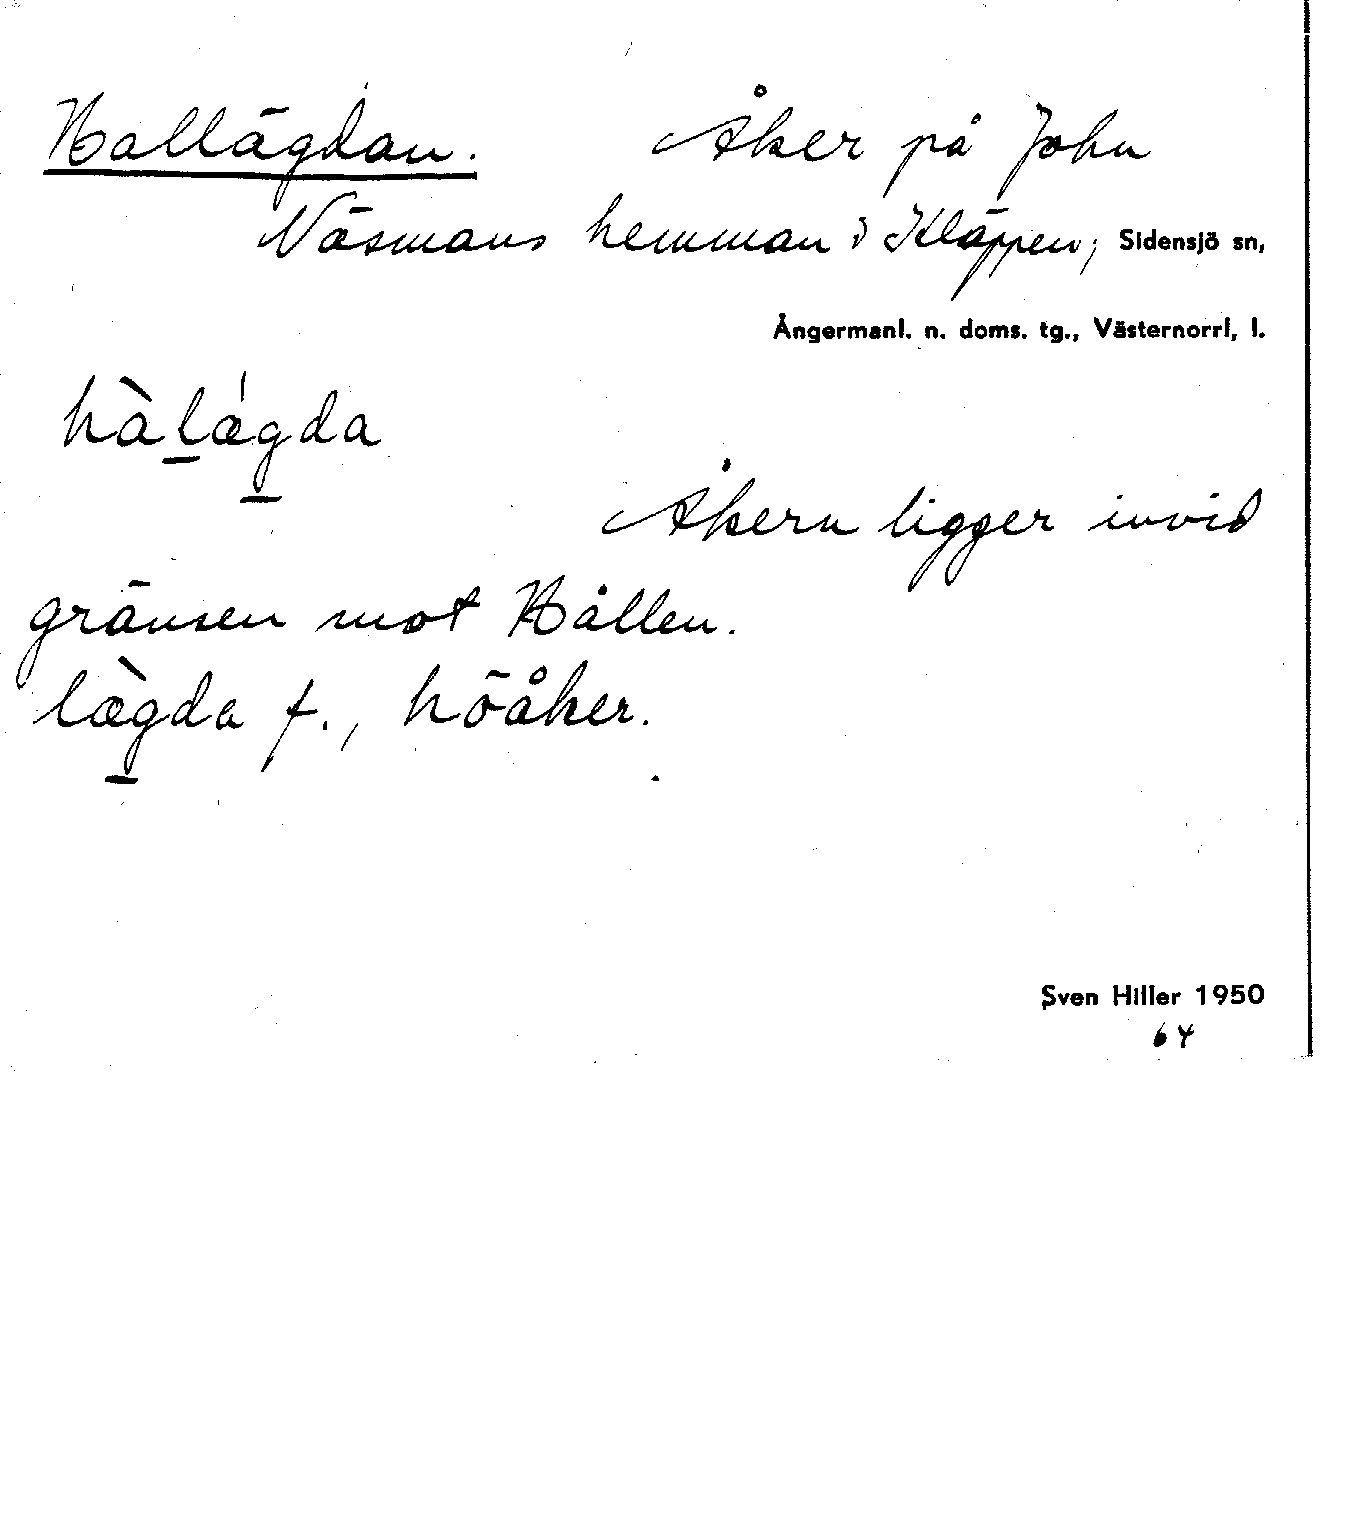 Hallägdan. Åker på John
Näsmans hemman i Kläppen, Sidensjö sn,
Ångermanl. n. doms. tg., Västernorrl. l.
hàl̠ǽg̠da
Åkern ligger invid
gränsen mot Hållen.
læ̀g̠da f., höåker.
Sven Hiller 1950
64